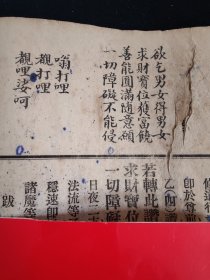 欲乞男女得男女
求財寶位獲富饒
善能圓滿隨意願
一切障礙不能侵
翁打哩
覩打哩
覩哩娑呵
修道行
印於尊
乙(四
若轉此讚
求財寶位
一切障礙
日夜二
法流等
穩速即
諸魔等
跋